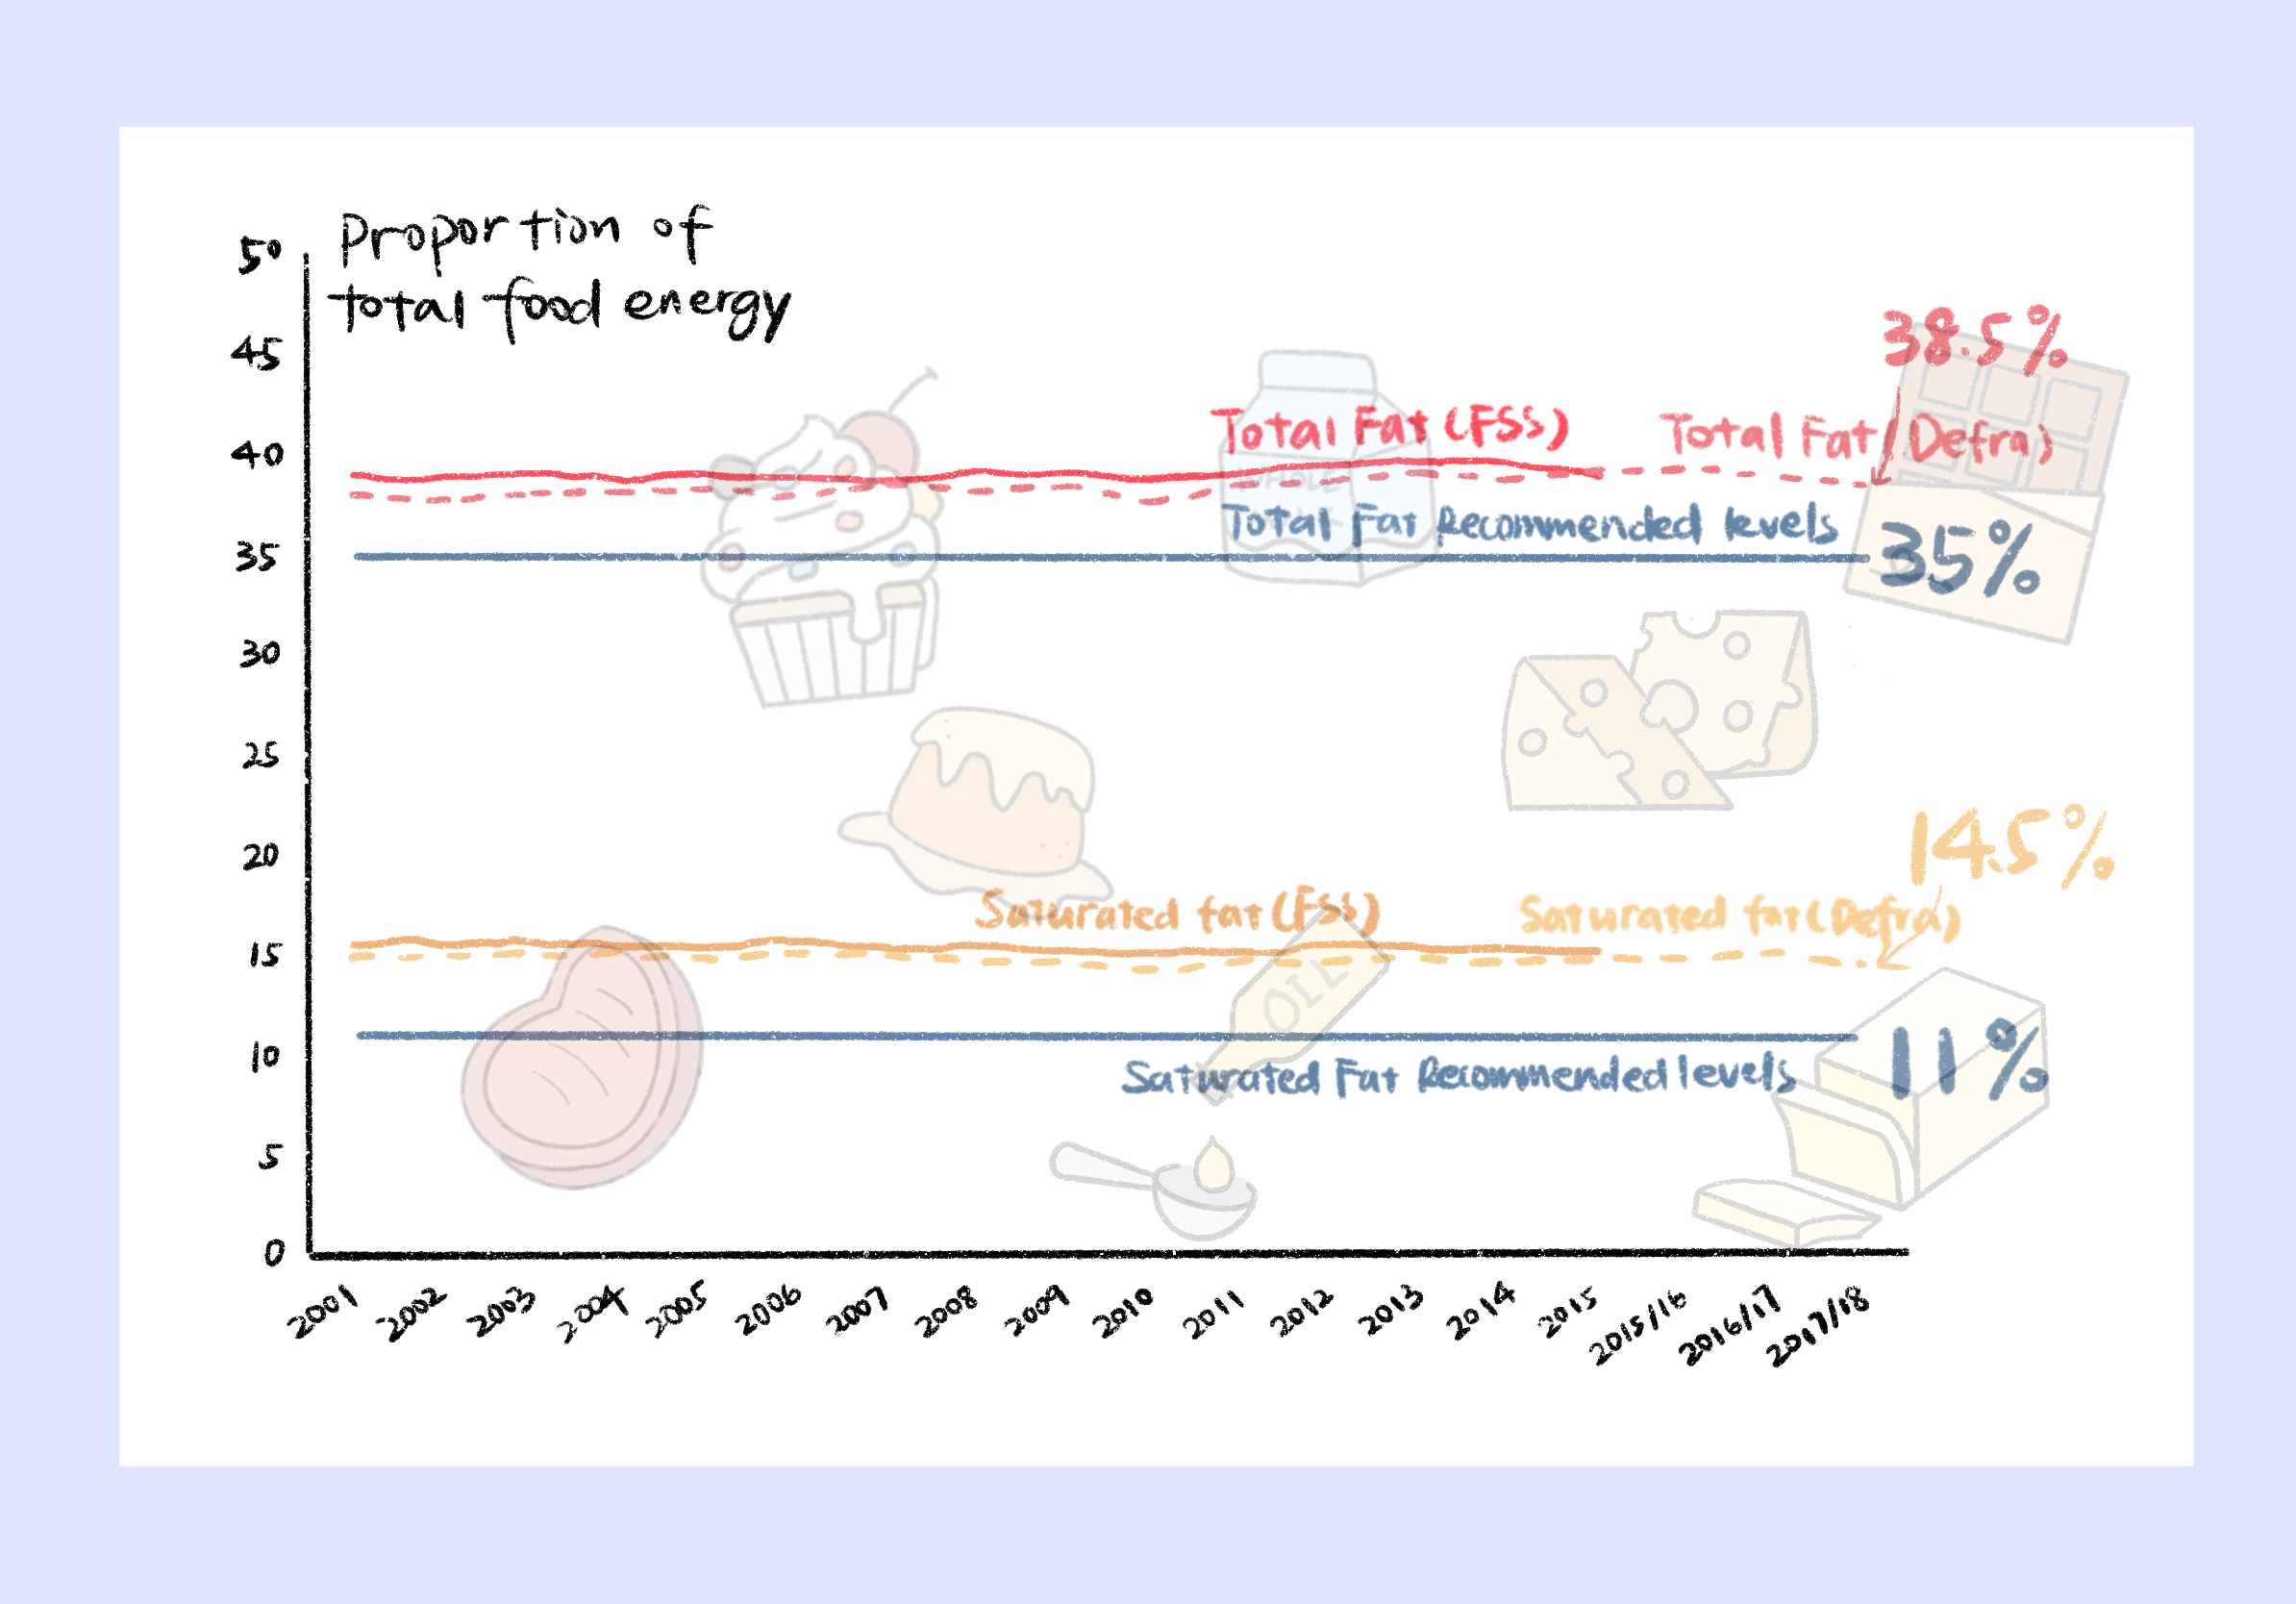 Proportion of
total food energy
50
45
40
35
30
25
20
15
10
5
0
38.5%
Total Fat (FSS)
Total Fat (Defra)
WHOLE
Total Fat Recommended levels
35%
14.5%
Saturated fat (FSS)
Saturated fat (Defra)
OIL
11%
Saturated Fat Recommended levels
2001
2002
2003
2004
2005
2006
2007
2008
2009
2010
2011
2012
2013
2014
2015
2015/16
2016/17
2017/18